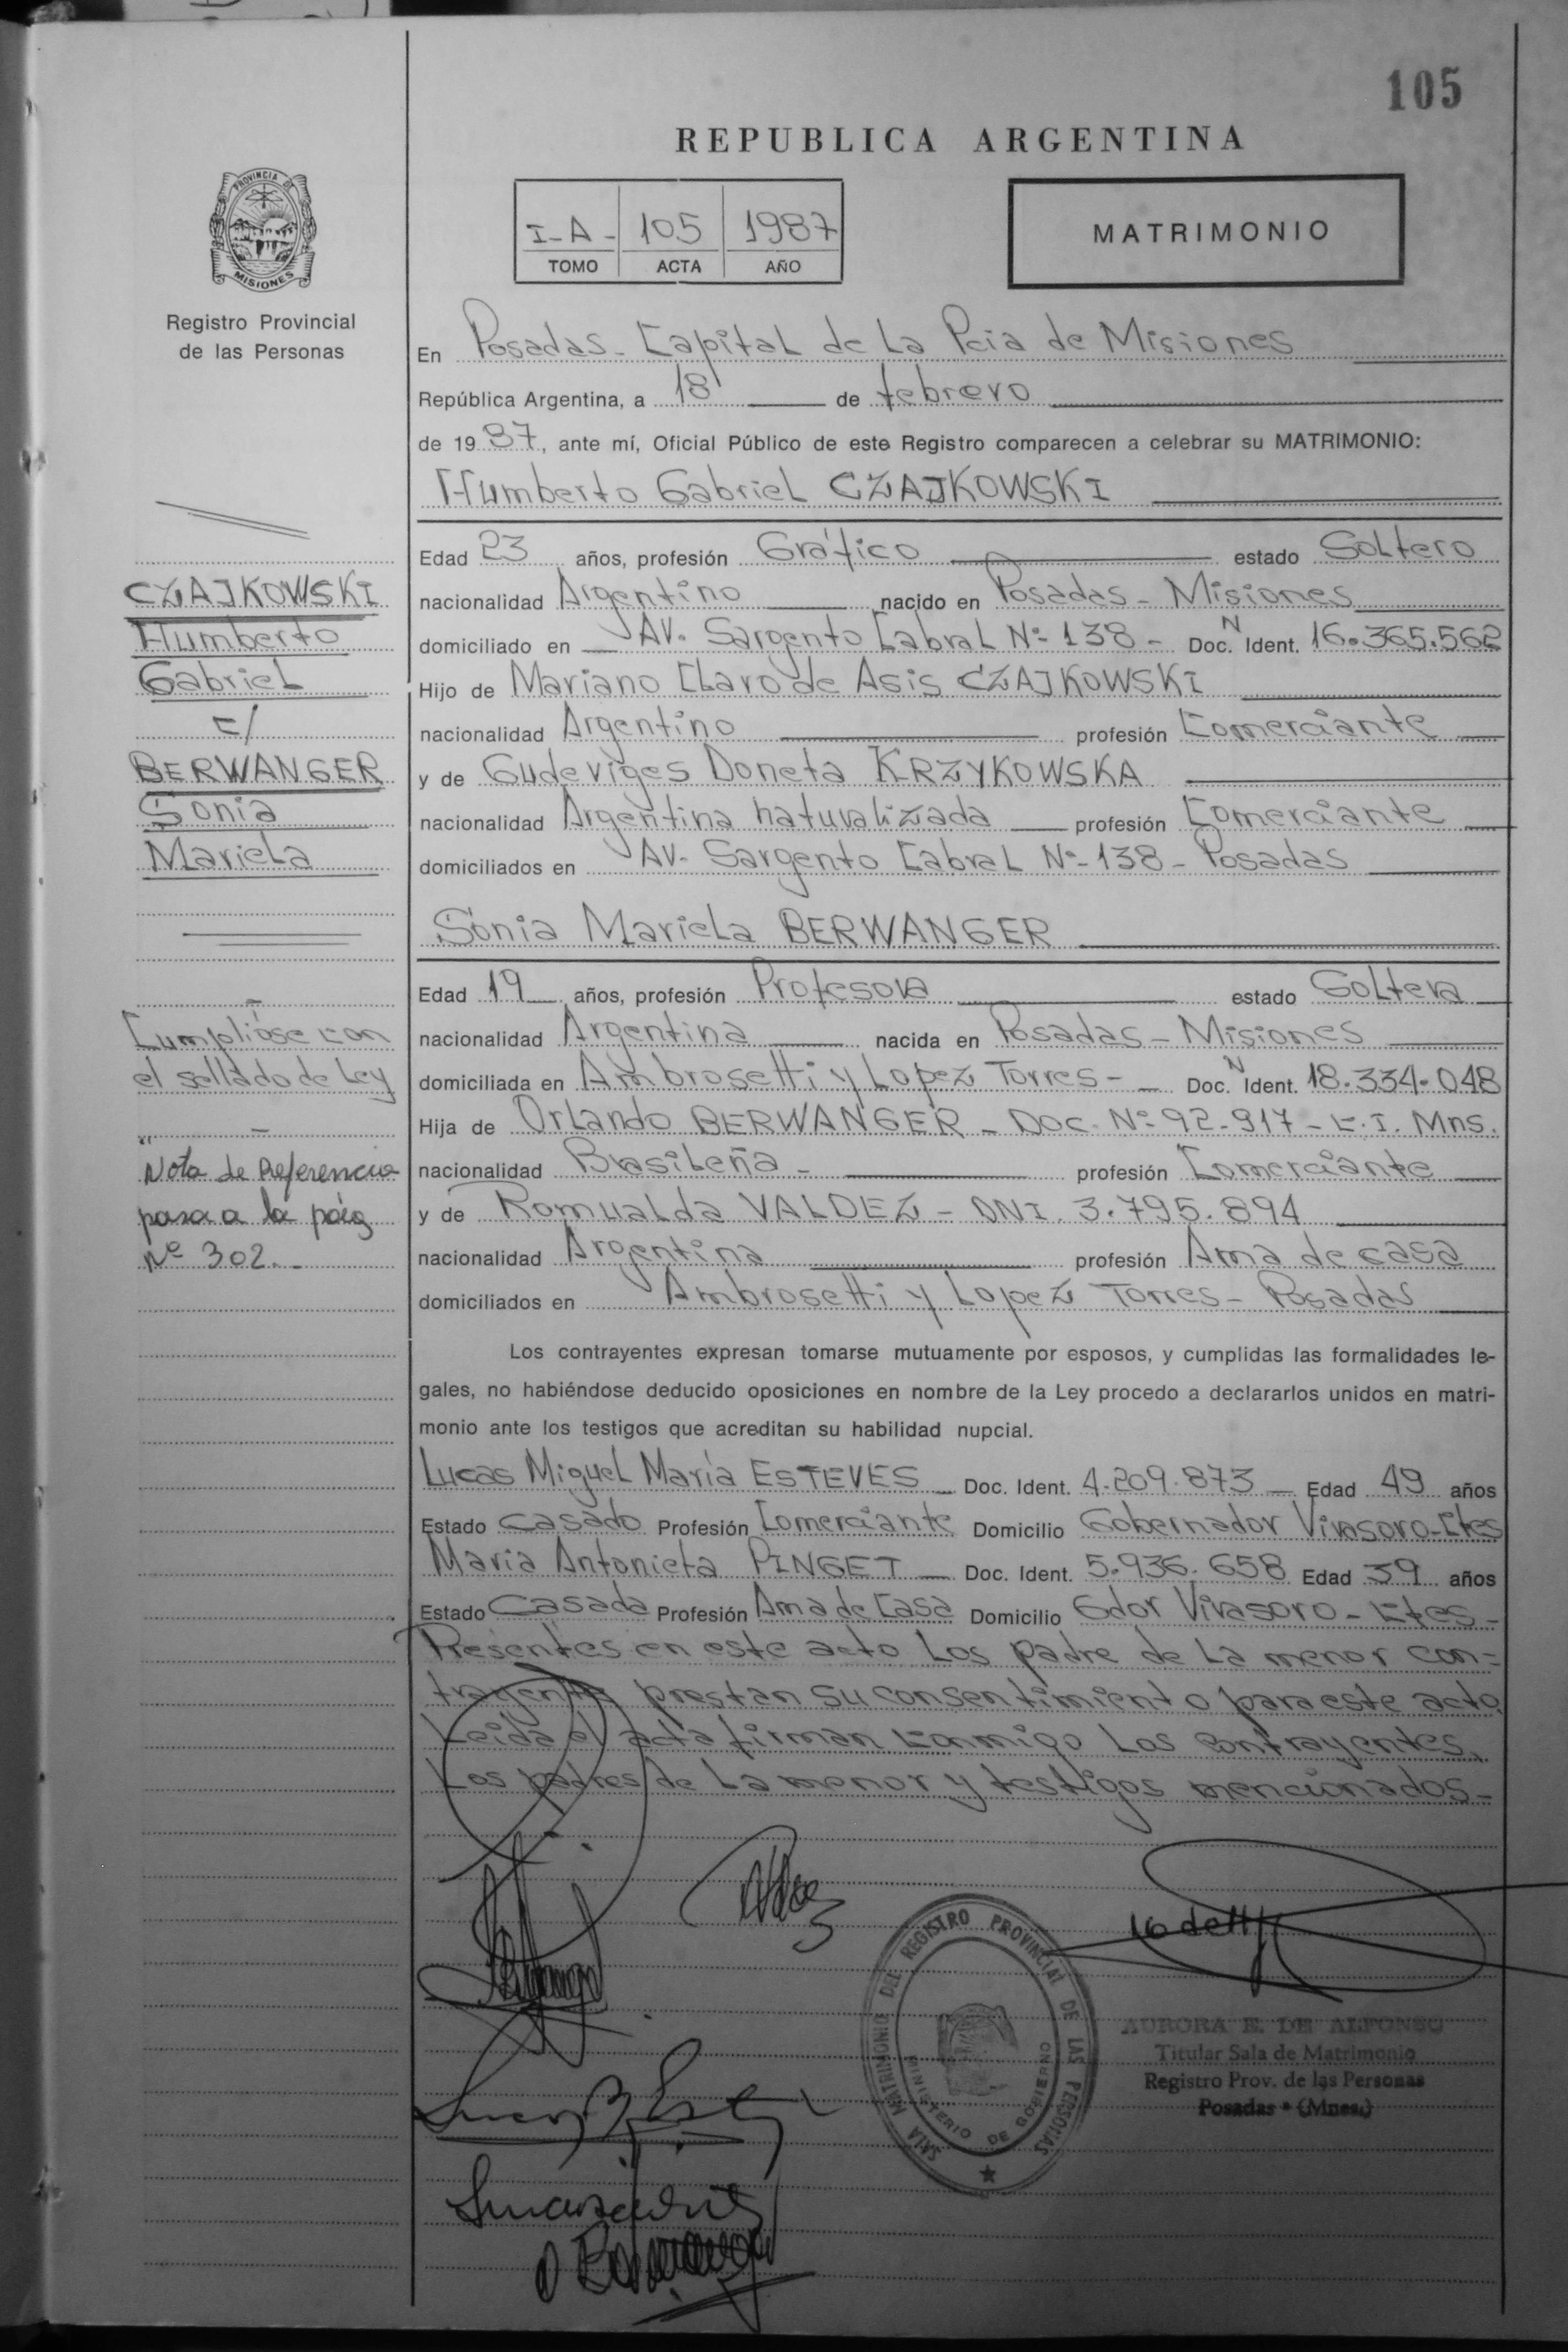 105
REPUBLICA ARGENTINA
PROVINCIA DE
MISIONES
Registro Provincial
de las Personas
I-A- 105 1987
TOMO ACTA AÑO
MATRIMONIO
En Posadas - Capital de La Pcia de Misiones
República Argentina, a 18 de febrero
de 1987, ante mí, Oficial Público de este Registro comparecen a celebrar su MATRIMONIO:
Humberto Gabriel CZAJKOWSKI
Edad 23 años, profesión Gráfico estado Soltero
nacionalidad Argentino nacido en Posadas - Misiones
domiciliado en Av. Sargento Cabral Nº 138 - Doc. N Ident. 16.365.562
Hijo de Mariano Claro de Asis CZAJKOWSKI
nacionalidad Argentino profesión Comerciante
y de Gudeviges Doneta KRZYKOWSKA
nacionalidad Argentina naturalizada profesión Comerciante
domiciliados en Av. Sargento Cabral Nº-138 - Posadas
Sonia Mariela BERWANGER
Edad 19 años, profesión Profesora estado Soltera
nacionalidad Argentina nacida en Posadas - Misiones
domiciliada en Ambrosetti y Lopez Torres - Doc. N Ident. 18.334.048
Hija de Orlando BERWANGER - Doc. Nº 92.917 - C.I. Mns.
nacionalidad Brasileña - profesión Comerciante
y de Romualda VALDEZ - DNI. 3.795.894
nacionalidad Argentina profesión Ama de casa
domiciliados en Ambrosetti y Lopez Torres - Posadas
Los contrayentes expresan tomarse mutuamente por esposos, y cumplidas las formalidades le-
gales, no habiéndose deducido oposiciones en nombre de la Ley procedo a declararlos unidos en matri-
monio ante los testigos que acreditan su habilidad nupcial.
Lucas Miguel María ESTEVES Doc. Ident. 4.209.873 Edad 49 años
Estado casado Profesión Comerciante Domicilio Gobernador Virasoro - Ctes
Maria Antonieta PINGET Doc. Ident. 5.936.658 Edad 39 años
Estado Casada Profesión Ama de Casa Domicilio Gdor Virasoro - Ctes -
Presentes en este acto Los padre de La menor con=
trayente prestan su consentimiento para este acto.
Leida el acta firman conmigo Los contrayentes,
Los padres de La menor y testigos mencionados -
CZAJKOWSKI
Humberto
Gabriel
c/
BERWANGER
Sonia
Mariela
Cumplióse con
el sellado de Ley
"Nota de Referencia
pasa a la pág
Nº 302.-
SALA MATRIMONIO DEL REGISTRO PROVINCIAL DE LAS PERSONAS
MINISTERIO DE GOBIERNO
AURORA E. DE ALFONSO
Titular Sala de Matrimonio
Registro Prov. de las Personas
Posadas - (Mnes.)